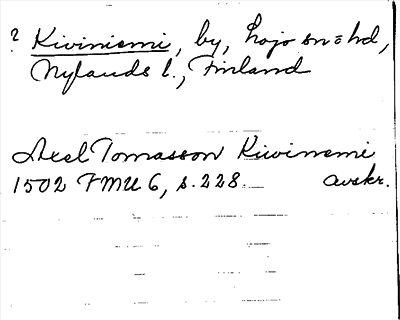 ? Kiviniemi, by, Lojo sn=hd,
Nylands l., Finland
Axel Tomasson Kiwinemi
1502 FMU 6, s. 228. avskr.